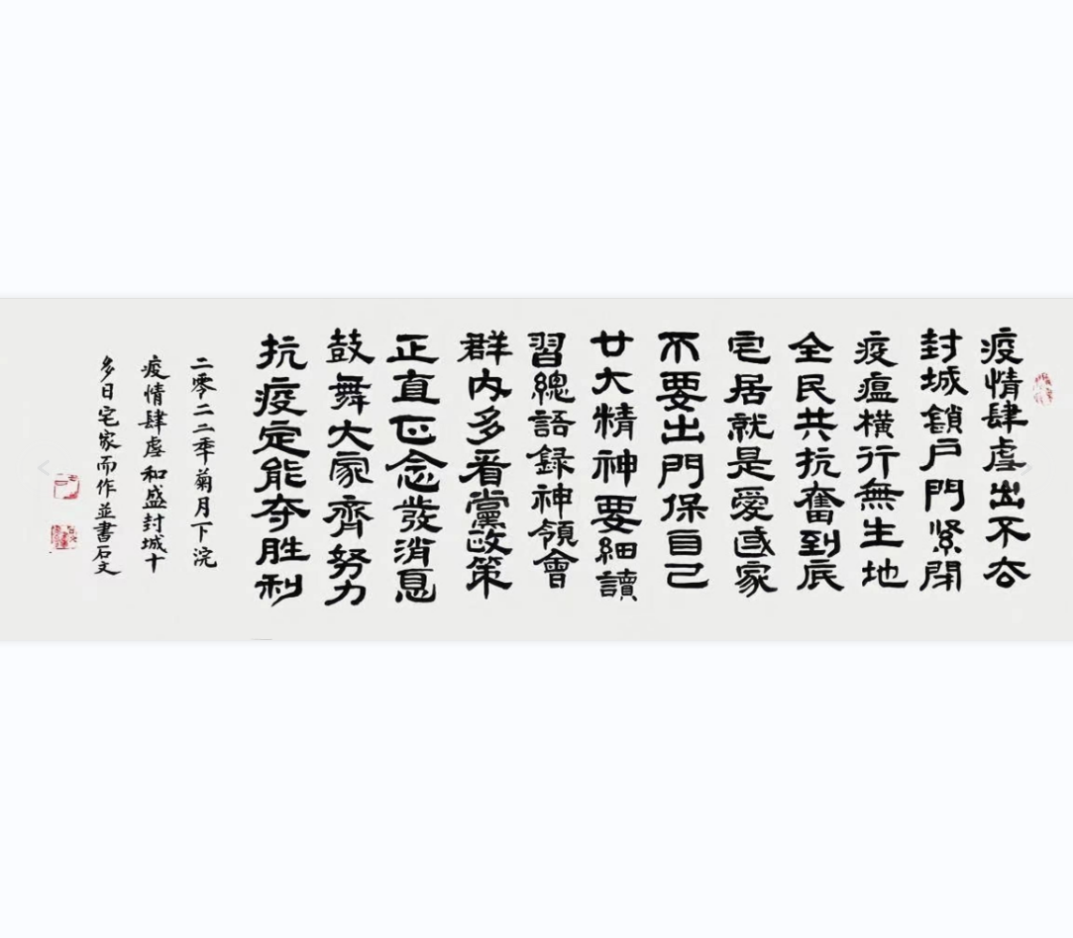 疫情肆虐出不去
封城鎖户門紧閉
疫瘟横行無生地
全民共抗奮到底
宅居就是愛國家
不要出門保自己
廿大精神要细讀
習總語録神領會
群内多看黨政策
正直正念發消息
鼓舞大家齊努力
抗疫定能夺胜利
二零二二年菊月下浣
疫情肆虐和盛封城十
多日宅家而作並書石文